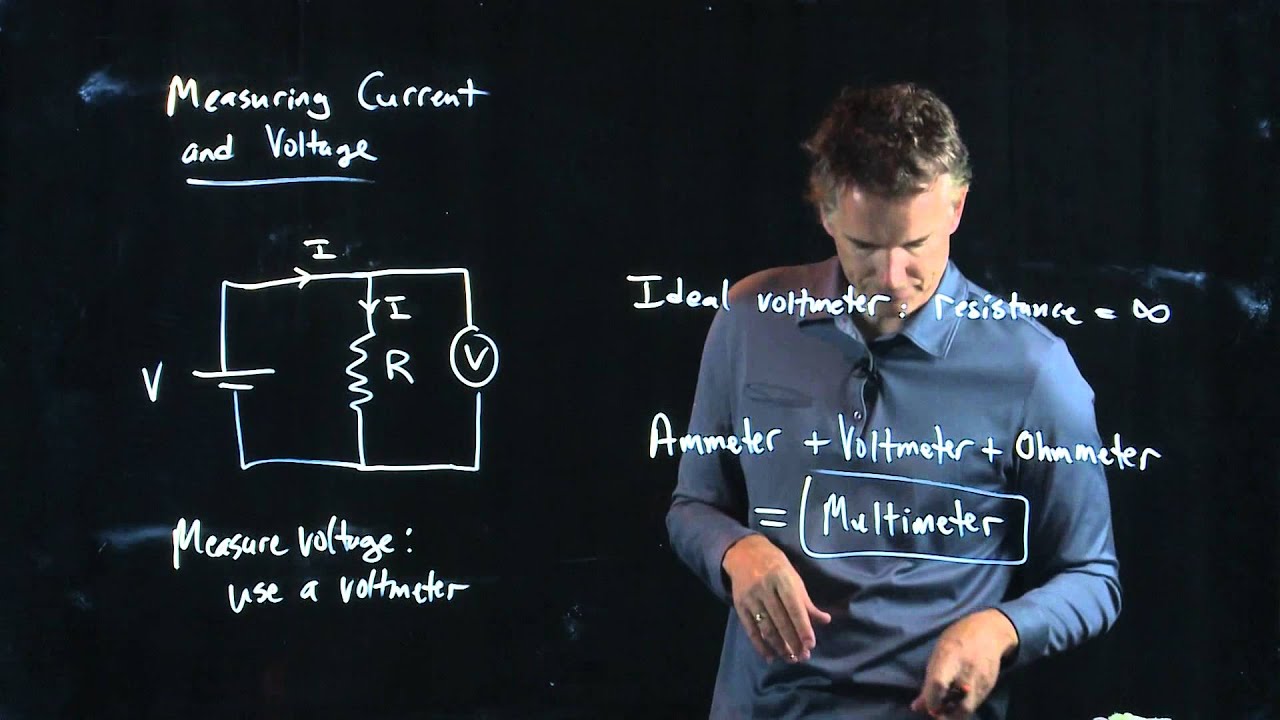 Measuring Current
and Voltage
I
I
V
R
V
Measure voltage:
use a voltmeter
Ideal voltmeter: resistance = ∞
Ammeter + Voltmeter + Ohmmeter
= Multimeter